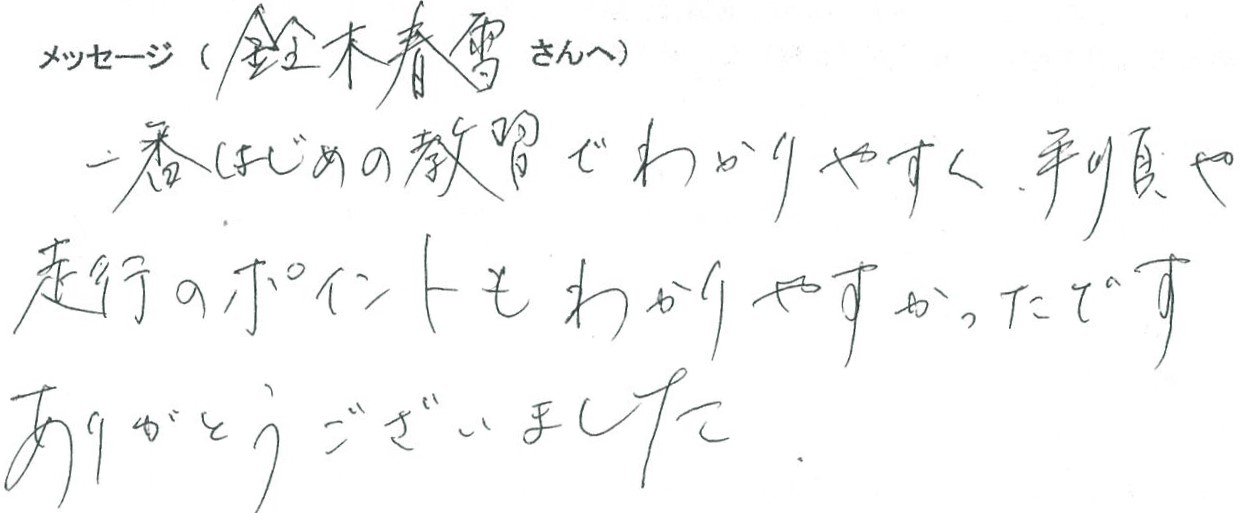 メッセージ（鈴木春雪さんへ）
一番はじめの教習でわかりやすく、手順や
走行のポイントもわかりやすかったです
ありがとうございました.